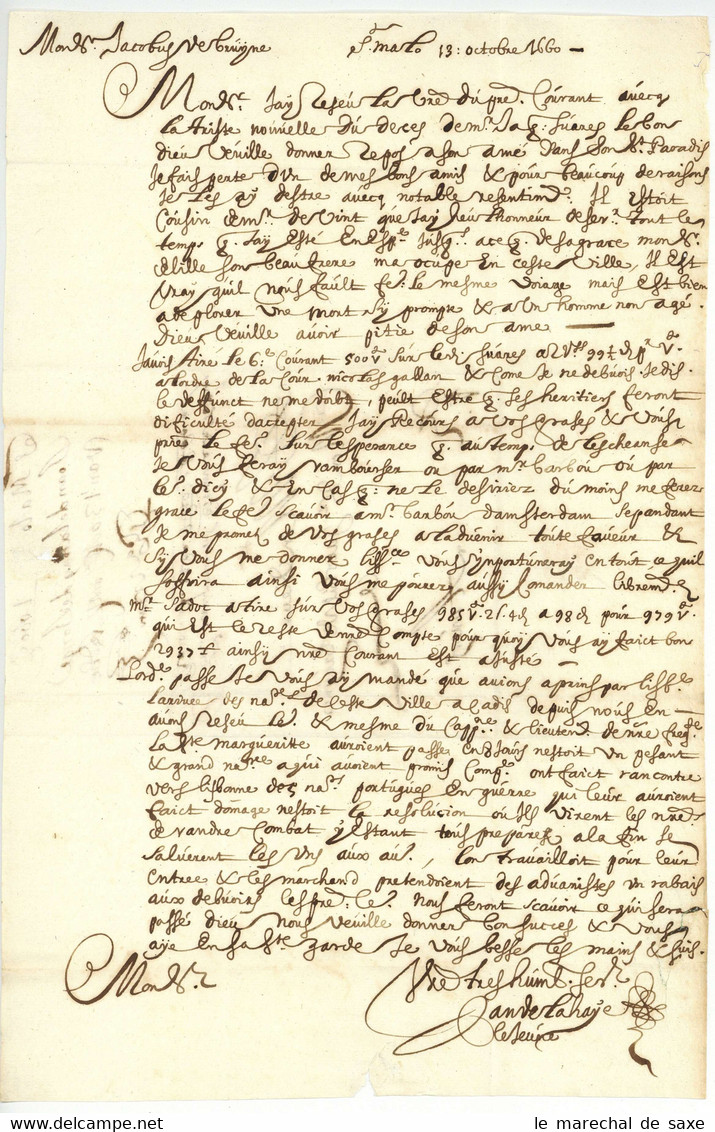 Monsr. Jacobus de bruÿne St. malo 13: octobre 1660 -
Monsr. Jay reseu la vre du pre. Courant avecq
la triste nouvelle du deces de mr. Suares le bon
dieu veuille donner repos a son ame dans son St. Paradis
Je fais perte d'un de mes bons amis & pour beaucoup de raisons
Je les ay destre avecq notable resentimt. Il estoit
Cousin de mr. de vint que Jay heu lhonneur de ser. tout le
temps q. Jay esté En Espe. Jusq. a ce q. de sa grace monsr.
de lille son beau frere ma ocupe En ceste ville, Il Est
vray quil nous fault fe. le mesme voiage mais Est bien
a deplorer une mort sy prompte & a un homme non agé.
Dieu veuille avoir pitie de son ame
Javois tiré le 6.e Courant 500 sur le di Suares a
a lordre de la Cour. nicolas gallan & Come Je ne debvois. Je dis
le deffunct ne me doibt, peult Estre q. ses heritiers feront
dificulté daccepter Jay Recours a vos grases & vous
prie le fe. sur lesperance q. au temp. de lescheanse
Je vous feray rambourser ou par mr. barbou ou par
le. dicy & En Cas q: ne le desiriez du moins me feres
grace le fe. scavoir a mr. barbou damsterdam sependant
Je me promet de vos grases a ladvenir toute faveur &
sy vous me donner vous ynportuneray en tout ce quil
sofrira ainsi vous me pouvez aussy Comander libremt.
mr. Sadoc a tire sur vos grases 985 a 98 d pour 979
qui Est le reste de nre Compte pour quoy vous ay faict bon
2937 ainsy nre Courant Est aiusté
Lorde. passe Je vous ay mande que avions aprins par
larivee des na. de ceste ville a Cadis depuis nous En
avons reseu le. & mesme du Cappne. & lieutent de nre freg.
la Ste margueritte auroient passe En Jours nestoit un pesant
& grand navre a qui avoient promis Compe. ont faict rancontre
vers lisbonne de 5 na. portugues En guerre qui leur auroient
faict domage nestoit la resolucion ou Ils virent les nre.
de randre Combat y Estant tous preparez a la fin se
saluerent les uns aux au., lon travailloit pour leur
Entree & les marchand pretendoient des un rabais
aux debvoirs les pre. le. nous feront scavoir ce qui sera
passé dieu nous veuille donner bon succes & vous
aye En sa Ste garde Je vous besse les mains & suis.
Monsr.
Vre treshumb. Ser.
Jan de la haye
le Jeune
le marechal de saxe